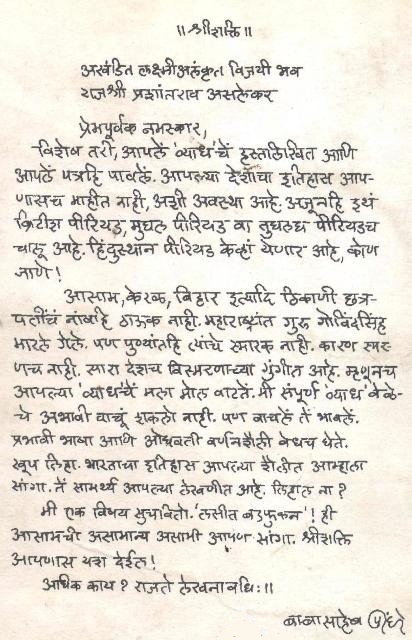 ॥ श्रीशक्ति ॥
अखंडित लक्ष्मीअलंकृत विजयी भव
राजश्री प्रशांतराव असलेकर
प्रेमपूर्वक नमस्कार,
विशेष तरी, आपलें 'व्याध'चें हस्तलिखित आणि
आपलें पत्रहि पावलें. आपल्या देशाचा इतिहास आप-
णासच माहीत नाही, अशी अवस्था आहे. अजूनहि इथं
ब्रिटीश पीरियड, मुघल पीरियड वा तुघलघ पीरियडच
चालू आहे. हिंदुस्थान पीरियड केव्हां येणार आहे, कोण
जाणे!
आसाम, केरळ, बिहार इत्यादि ठिकाणी छत्र-
पतींचं नांवहि ठाऊक नाही. महाराष्ट्रांत गुरु गोविंदसिंह
मारले गेले. पण पुण्यांतहि त्यांचे स्मारक नाही. कारण स्मर-
णच नाही. सारा देशच विस्मरणाच्या गुंगीत आहे. म्हणूनच
आपल्या 'व्याध'चें मला मोल वाटतें. मी संपूर्ण 'व्याध' वेळे-
चे अभावी वाचूं शकलो नाही. पण वाचलें तें भावलें.
प्रभावी भाषा आणि ओघवती वर्णनशैली वेधच घेते.
खूप लिहा. भारताचा इतिहास आपल्या शैलीत आम्हाला
सांगा. तें सामर्थ्य आपल्या लेखणीत आहे. लिहाल ना?
मी एक विषय सुचवितो. 'लसीत बडफुकन'! ही
आसामची असामान्य असामी आपण सांगा. श्रीशक्ति
आपणास यश देईल!
अधिक काय? राजते लेखनावधिः॥
बाबासाहेब पुरंदरे